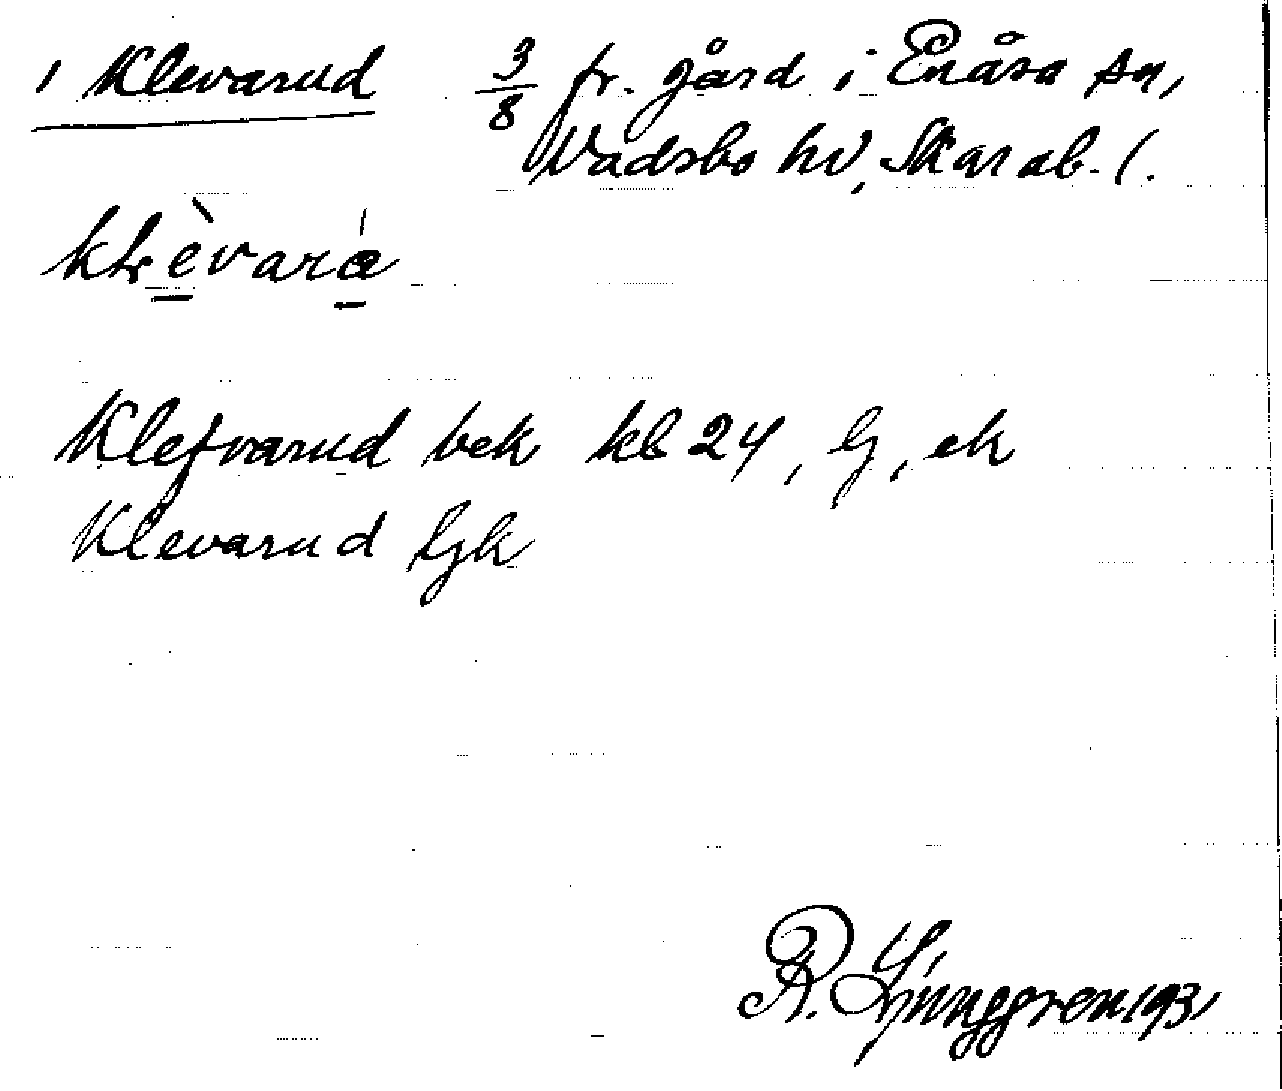 1 Klevarud 3/8 fr. gård i Enåsa sn,
Vadsbo hd, Skarab. l.
klèvará
Klefvarud bek kb 24, lj, ek
Klevarud ljk
R. Ljunggren 1931